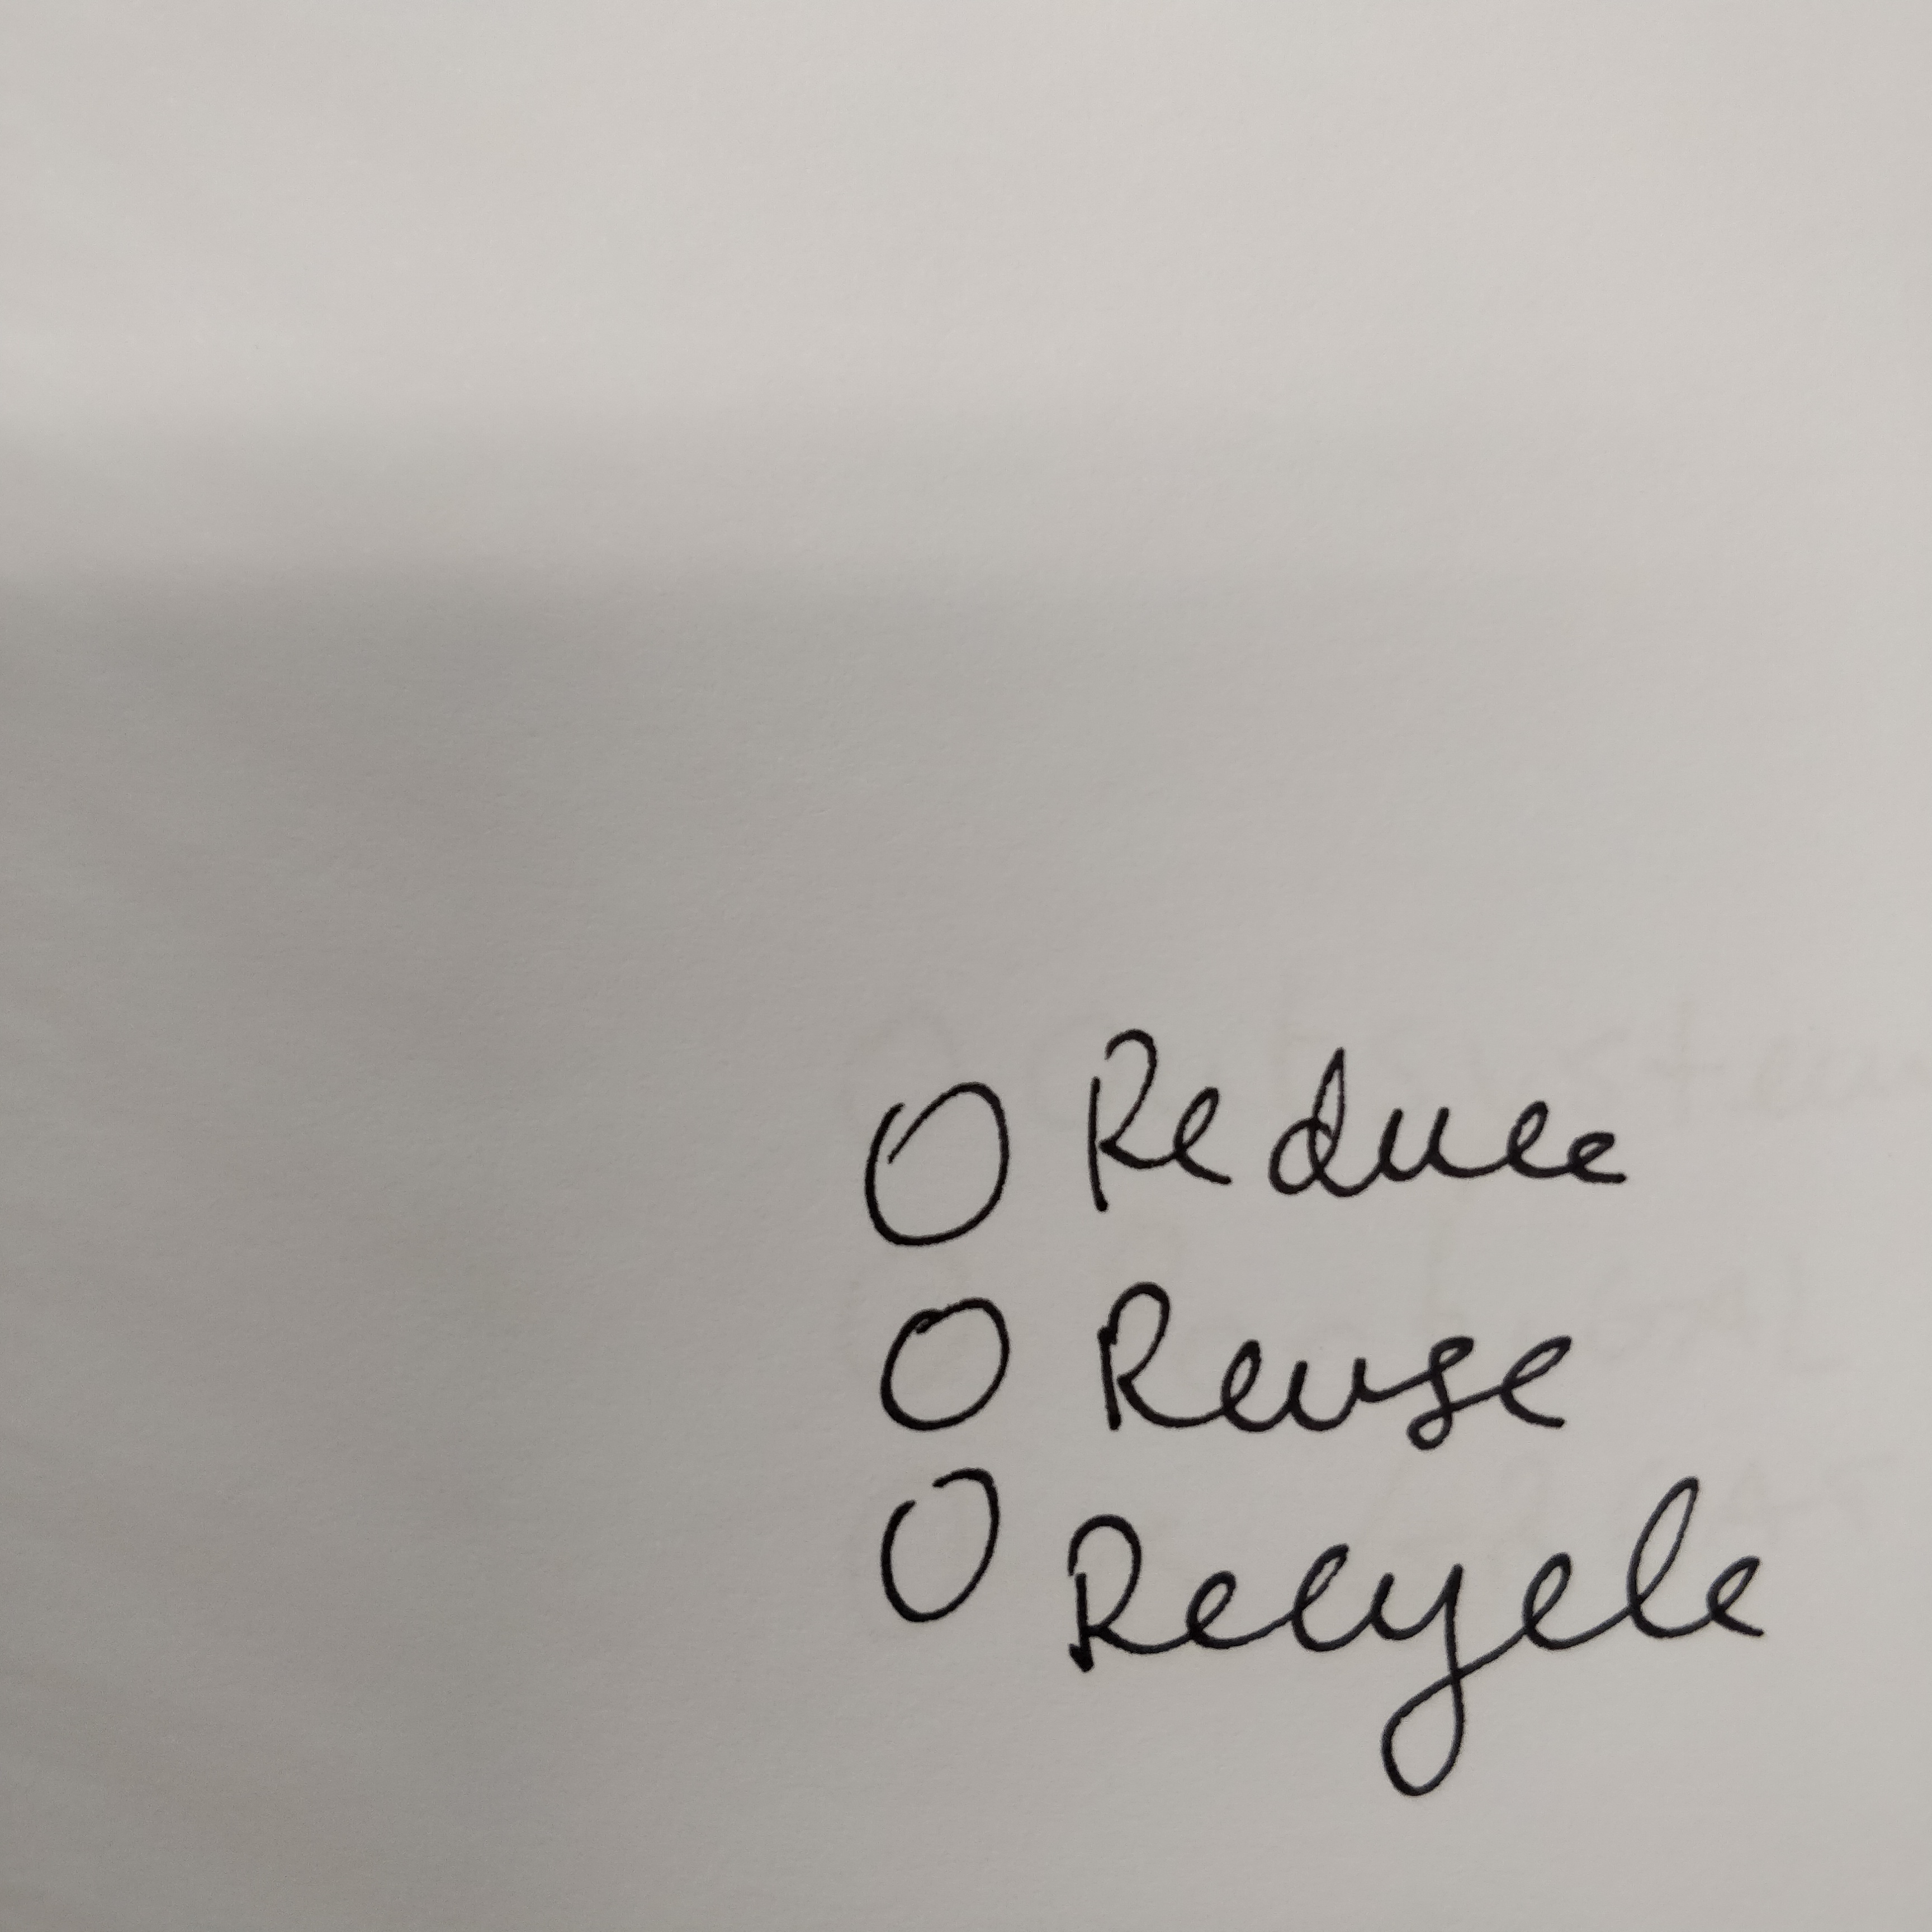 O Reduce
O Reuse
O Recycle